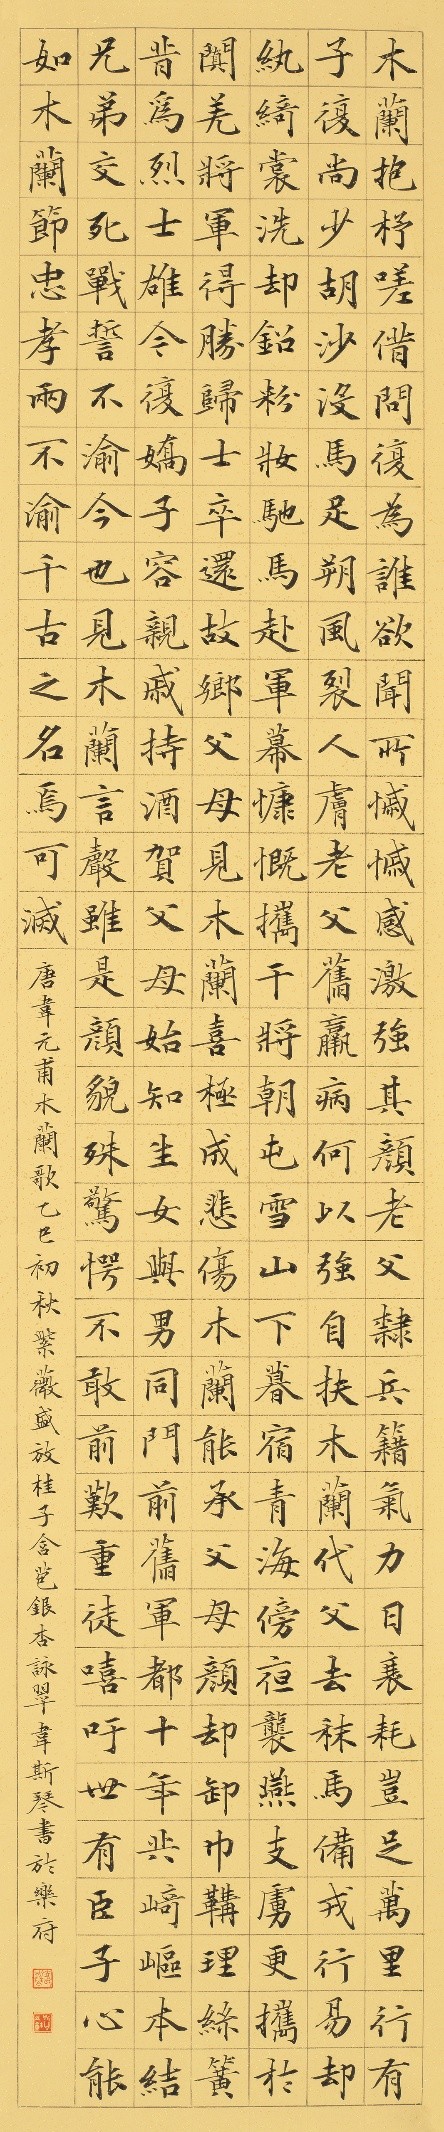 木蘭抱杼嗟借問復為誰欲聞所慽慽感激強其顏老父隸兵籍氣力日衰耗豈足萬里行有
子復尚少胡沙沒馬足朔風裂人膚老父舊羸病何以強自扶木蘭代父去秣馬備戎行易却
紈綺裳洗却鉛粉妝馳馬赴軍幕慷慨攜干將朝屯雪山下暮宿青海傍夜襲燕支虜更攜於
闐羌將軍得勝歸士卒還故鄉父母見木蘭喜極成悲傷木蘭能承父母顏却卸巾鞲理絲簧
昔爲烈士雄今復嬌子容親戚持酒賀父母始知生女與男同門前舊軍都十年共崎嶇本結
兄弟交死戰誓不渝今也見木蘭言聲雖是顏貌殊驚愕不敢前歎重徒嘻吁世有臣子心能
如木蘭節忠孝兩不渝千古之名焉可滅
唐韋元甫木蘭歌乙巳初秋紫薇盛放桂子含芭銀杏詠翠韋斯琴書於樂府